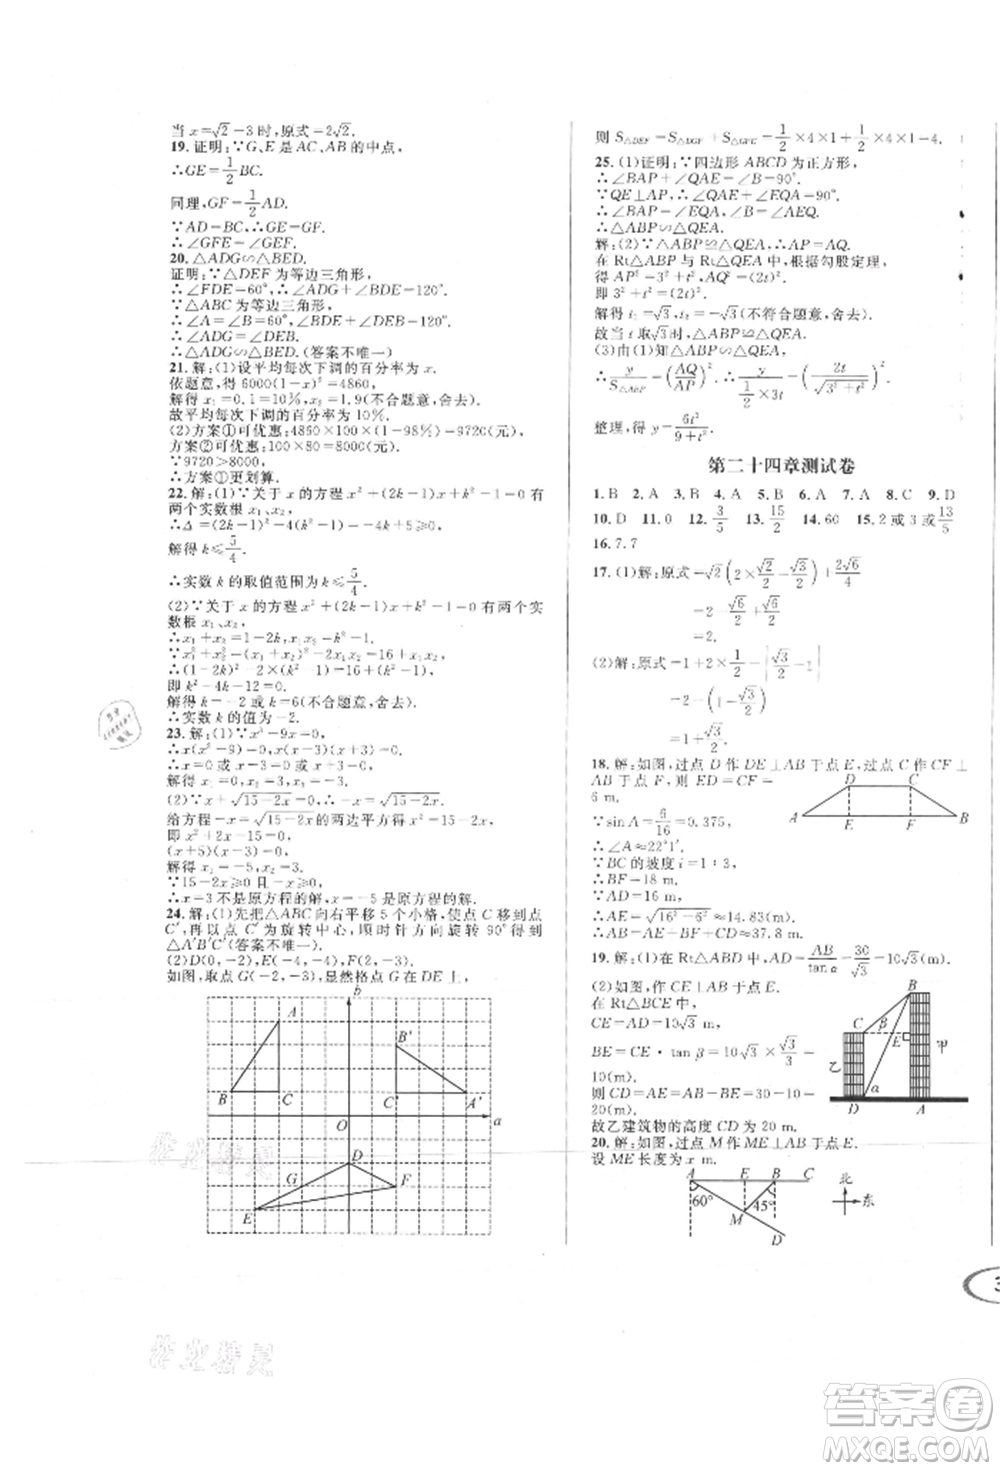 当 x=√2-3时,原式=2√2.
19.证明:∵G、E是AC、AB的中点,
∴GE=1/2BC.
同理,GF=1/2AD.
∵AD=BC,∴GE=GF.
∴∠GFE=∠GEF.
20.△ADG∽△BED.
证明:∵△DEF为等边三角形,
∴∠FDE=60°,
∴∠ADG+∠BDE=120°.
∵△ABC为等边三角形,
∴∠A=∠B=60°,∠BED+∠BDE=120°.
∴∠ADG=∠DEB.
∴△ADG∽△BED.(答案不唯一)
21.解:(1)设平均每次下调的百分率为x.
依题意,得6000(1-x)²=4860,
解得x₁=0.1=10%,x₂=1.9(不合题意,舍去).
故平均每次下调的百分率为10%.
(2)方案①可优惠:4860×100×(1-98%)=9720(元),
方案②可优惠:100×80=8000(元),
∵9720>8000,
∴方案①更划算.
22.解:(1)∵关于x的方程x²+(2k-1)x+k²-1=0有
两个实数根x₁、x₂,
∴Δ=(2k-1)²-4(k²-1)=-4k+5≥0,
解得k≤5/4.
∴实数k的取值范围为k≤5/4.
(2)∵关于x的方程x²+(2k-1)x+k²-1=0有两个实
数根x₁、x₂,
∴x₁+x₂=1-2k,x₁x₂=k²-1.
∵x₁²+x₂²=(x₁+x₂)²-2x₁x₂=16+x₁x₂,
∴(1-2k)²-2(k²-1)=16+(k²-1),
即k²-4k-12=0,
解得k=-2或k=6(不合题意,舍去).
∴实数k的值为-2.
23.解:(1)∵x³-9x=0,
∴x(x²-9)=0,∴x(x+3)(x-3)=0,
∴x=0或x+3=0或x-3=0,
解得x₁=0,x₂=-3,x₃=3.
(2)∵x+√(15-2x)=0,∴-x=√(15-2x),
给方程-x=√(15-2x)的两边平方得x²=15-2x,
即x²+2x-15=0,
(x+5)(x-3)=0,
解得x₁=-5,x₂=3.
∵15-2x≥0且-x≥0,
∴x=3不是原方程的解,x=-5是原方程的解.
24.解:(1)先把△ABC向右平移5个小格,使点C移至点
C′,再以点C′为旋转中心,顺时针方向旋转90°得到
△A′B′C′(答案不唯一).
(2)D(0,-2),E(-4,-4),F(2,-3).
如图,取点G(-2,-3),显然格点G在DE上,
b
A
B′
B
C
C′
A′
O
a
D
G
F
E
则S△DEF=S△DGF+S△GFE=1/2×4×1+1/2×4×1=4.
25.(1)证明:∵四边形ABCD为正方形,
∴∠BAP+∠QAE=∠B=90°.
∵QE⊥AP,∴∠QAE+∠EQA=90°.
∴∠BAP=∠EQA,∠B=∠QEA.
∴△ABP∽△QEA.
解:(2)∵△ABP≌△QEA,∴AP=AQ.
在Rt△ABP与Rt△QEA中,根据勾股定理,
得AP²=3²+t²,AQ²=(2t)²,
即3²+t²=(2t)²,
解得t₁=√3,t₂=-√3(不符合题意,舍去).
故当t取√3时,△ABP≌△QEA.
(3)由(1)知△ABP∽△QEA,
∴y/S△ABP=(AQ/AP)²,∴y/(1/2×3t)=(2t/√(3²+t²))².
整理,得y=6t³/(9+t²).
第二十四章测试卷
1.B 2.A 3.B 4.A 5.B 6.A 7.A 8.C 9.D
10.D 11.0 12.3/5 13.15/2 14.60 15.2或3或13/5
16.7.7
17.(1)解:原式=√2(2×√2/2-√3/2)+√6/4
=2-√6/2+√6/2
=2.
(2)解:原式=1+2×√3/2-|√3/2-1|
=-(1-√3/2)
=1+√3/2.
18.解:如图,过点D作DE⊥AB于点E,过点C作CF⊥
AB于点F,则ED=CF=
6 m.
∵sin A=6/16=0.375,
∴∠A≈22°1′.
∵BC的坡度i=1:3,
∴BF=18 m.
∵AD=16 m,
∴AE=√(16²-6²)≈14.83(m).
∴AB=AE+EF+BF≈37.8 m.
D C
A E F B
19.解:(1)在Rt△ABD中,AD=AB/tan α=30/√3=10√3(m).
(2)如图,作CE⊥AB于点E.
在Rt△BCE中,
CE=AD=10√3 m,
BE=CE·tan β=10√3×√3/3=
10(m).
则CD=AE=AB-BE=30-10=
20(m).
故乙建筑物的高度CD为20 m.
B
C β
E
甲
乙
α
D A
20.解:如图,过点M作ME⊥AB于点E.
设ME长度为x m.
A E B C
60° 45°
M
D
北
东
作业精灵
作业精灵
答案圈
MXQE.COM